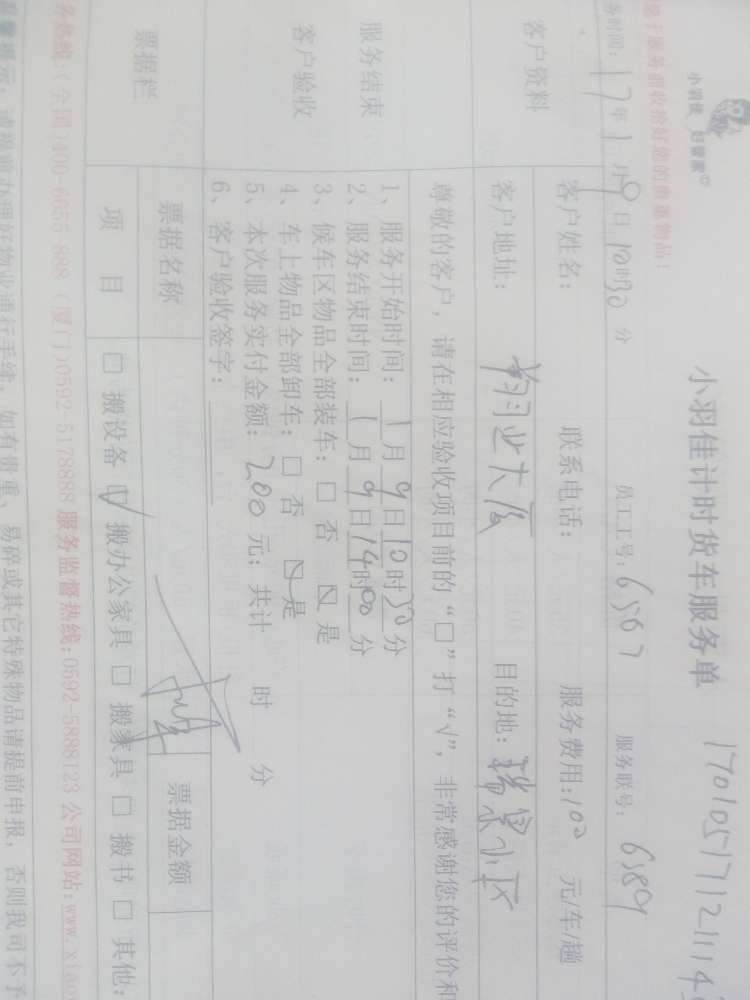 17010517121114
小羽佳计时货车服务单
小羽佳 好管家©
于服务前收拾好您的贵重物品!
务时间: 17年1月9日10时30分 员工工号: 6567 服务联号: 6589
客户资料
客户姓名: 联系电话: 服务费用:102 元/车/趟
客户地址: 翔业大厦 目的地: 瑞景小区
服务结束
客户验收
尊敬的客户,请在相应验收项目前的“□”打“√”,非常感谢您的评价和
1、服务开始时间: 1月9日10时30分
2、服务结束时间: 1月9日14时00分
3、候车区物品全部装车: □ 否 ☑ 是
4、车上物品全部卸车: □ 否 ☑ 是
5、本次服务实付金额: 200 元; 共计 时 分
6、客户验收签字:
票据栏
票据名称 票据金额
项 目 □ 搬设备 ☑ 搬办公家具 □ 搬家具 □ 搬书 □ 其他:
务热线:(全国)400-6655-888 (厦门)0592-5178888 服务监督热线:0592-5888123 公司网站:www.xiao
提示: 请提前办理好物业通行手续, 如有贵重、易碎或其它特殊物品请提前申报, 否则我司不予